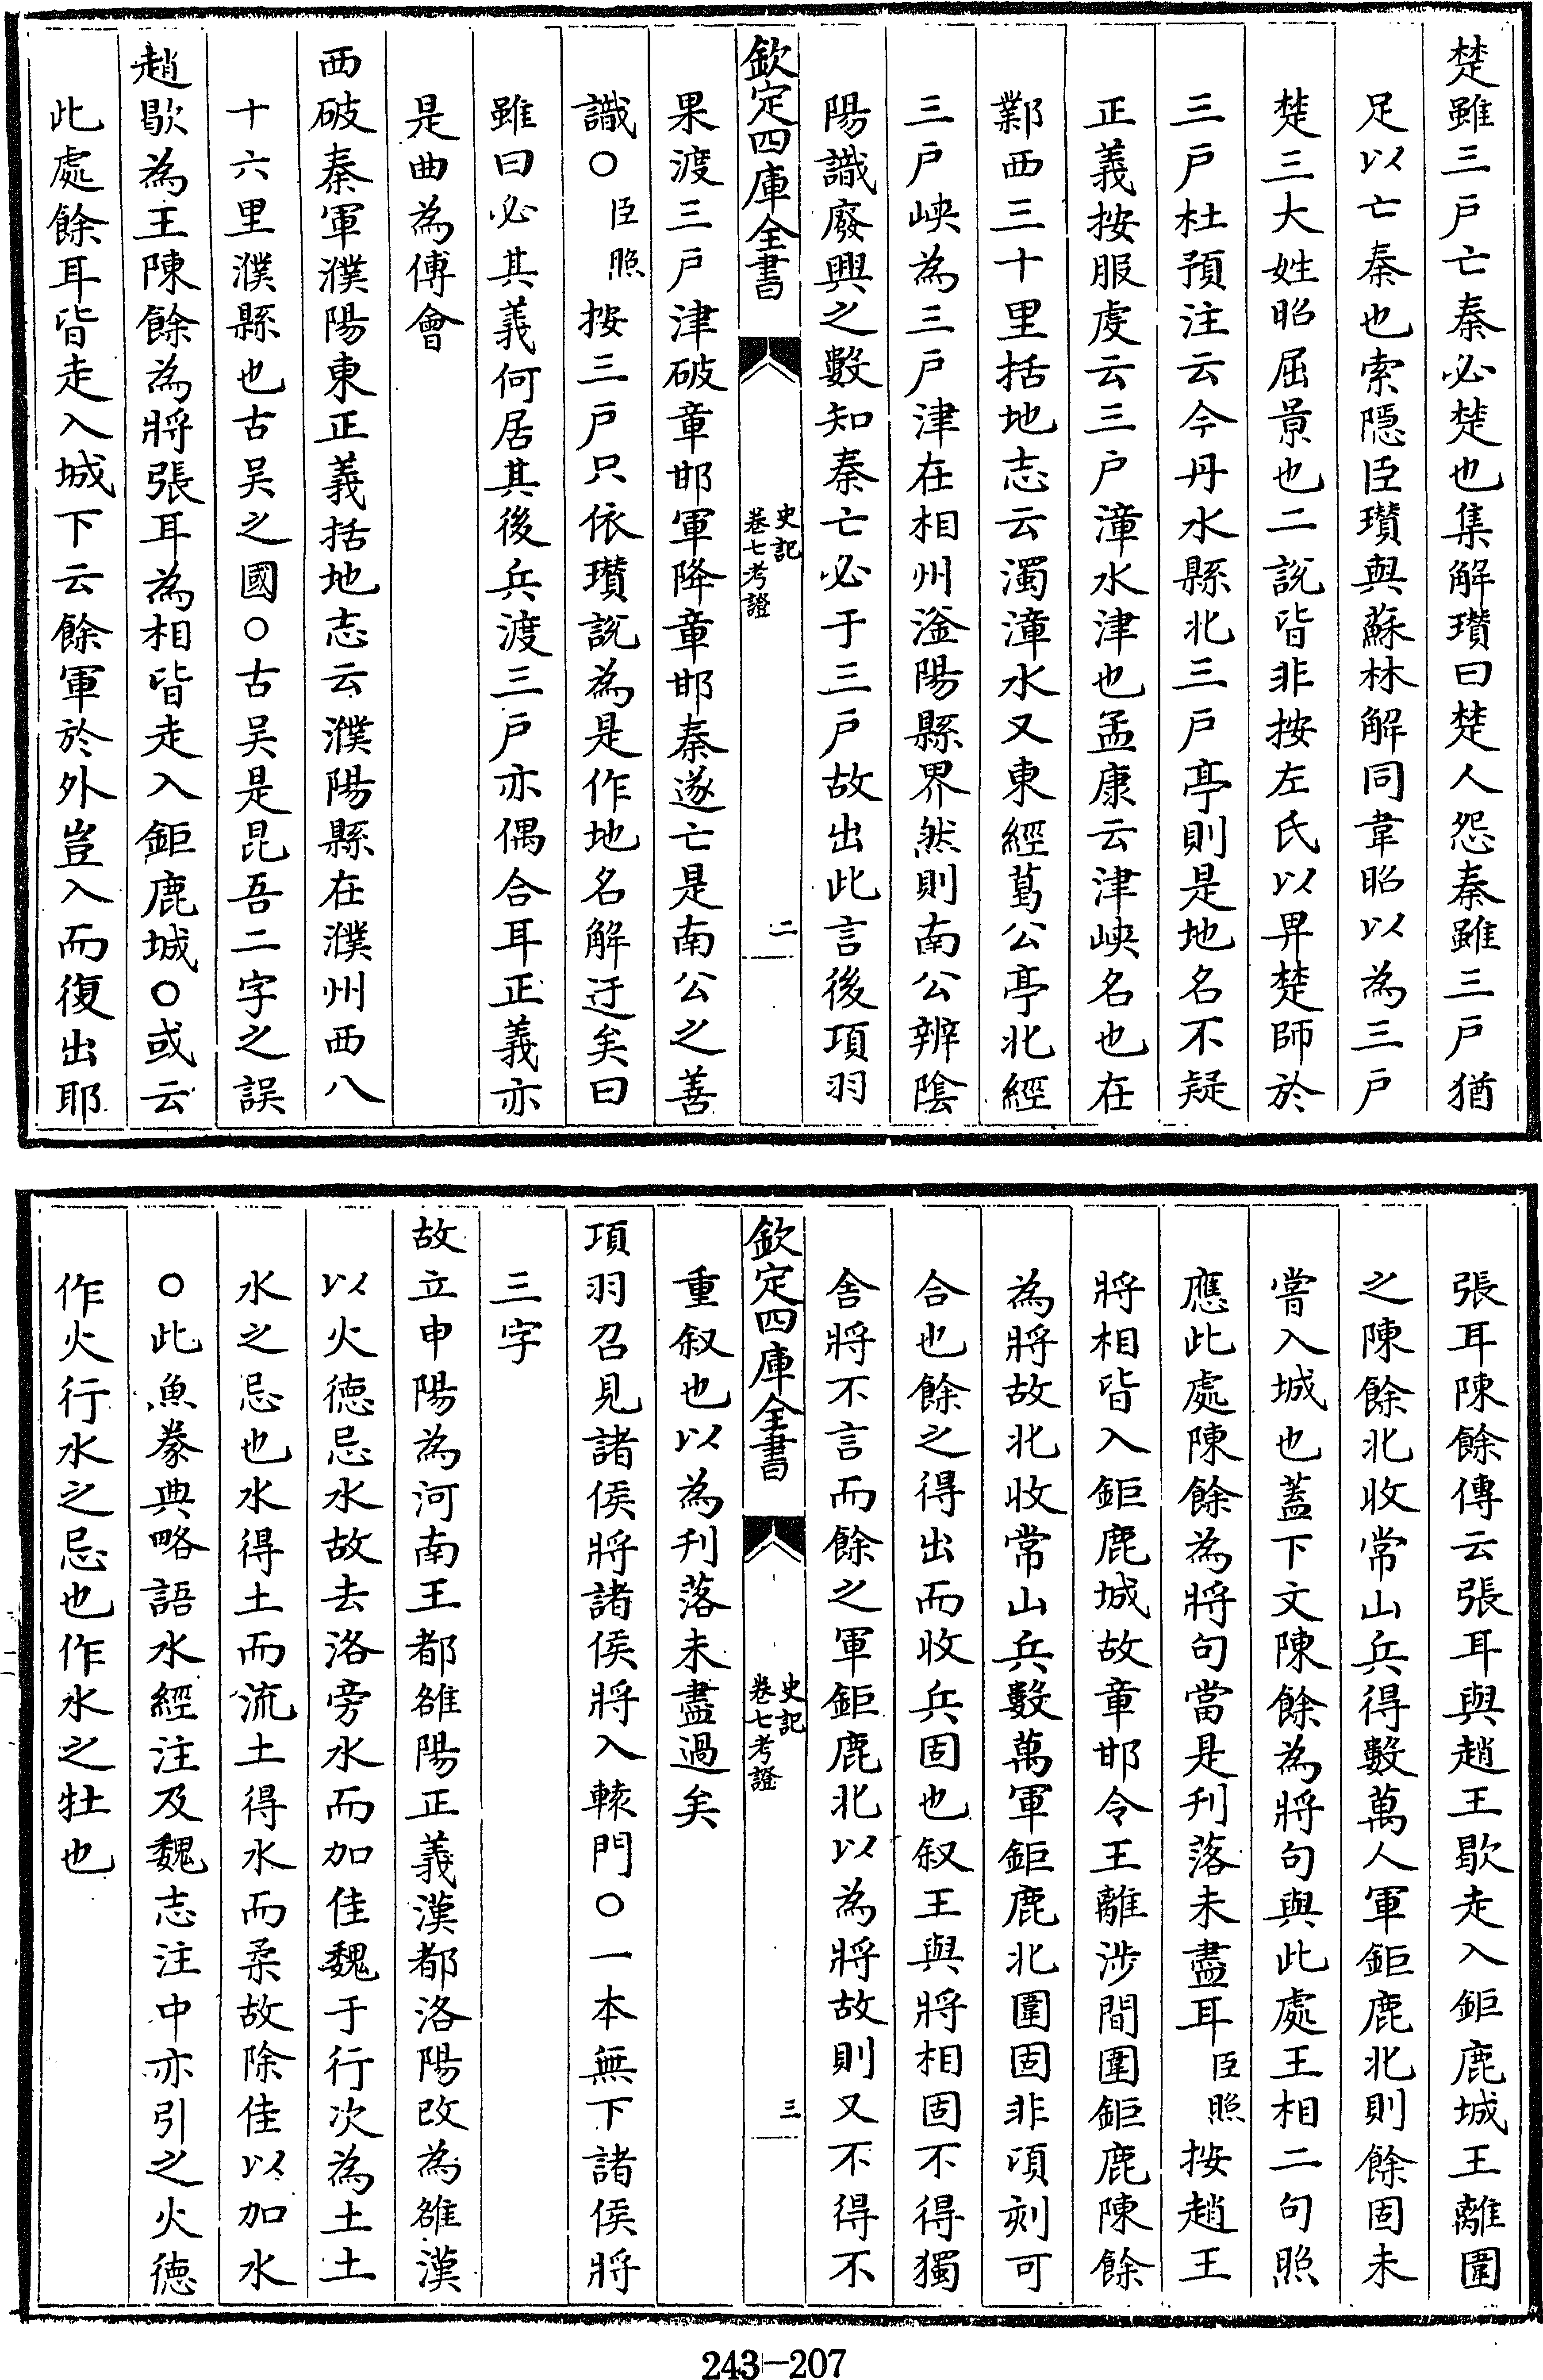 楚雖三戶亡秦必楚也集解瓚曰楚人怨秦雖三戶猶
足以亡秦也索隱臣瓚與蘇林解同韋昭以為三戶
楚三大姓昭屈景也二說皆非按左氏以畀楚師於
三戶杜預注云今丹水縣北三戶亭則是地名不疑
正義按服虔云三戶漳水津也孟康云津峽名也在
鄴西三十里括地志云濁漳水又東經葛公亭北經
三戶峽為三戶津在相州滏陽縣界然則南公辨陰
陽識廢興之數知秦亡必于三戶故出此言後項羽
欽定四庫全書
史記
卷七考證
二
果渡三戶津破章邯軍降章邯秦遂亡是南公之善
識○臣照按三戶只依瓚說為是作地名解迂矣曰
雖曰必其義何居其後兵渡三戶亦偶合耳正義亦
是曲為傅會
西破秦軍濮陽東正義括地志云濮陽縣在濮州西八
十六里濮縣也古吳之國○古吳是昆吾二字之誤
趙歇為王陳餘為將張耳為相皆走入鉅鹿城○或云
此處餘耳皆走入城下云餘軍於外豈入而復出耶
張耳陳餘傳云張耳與趙王歇走入鉅鹿城王離圍
之陳餘北收常山兵得數萬人軍鉅鹿北則餘固未
嘗入城也蓋下文陳餘為將句與此處王相二句照
應此處陳餘為將句當是刋落未盡耳臣照按趙王
將相皆入鉅鹿城故章邯令王離涉間圍鉅鹿陳餘
為將故北收常山兵數萬軍鉅鹿北圍固非頃刻可
合也餘之得出而收兵固也叙王與將相固不得獨
舍將不言而餘之軍鉅鹿北以為將故則又不得不
欽定四庫全書
史記
卷七考證
三
重叙也以為刋落未盡過矣
項羽召見諸侯將諸侯將入轅門○一本無下諸侯將
三字
故立申陽為河南王都雒陽正義漢都洛陽改為雒漢
以火德忌水故去洛旁水而加隹魏于行次為土土
水之忌也水得土而流土得水而柔故除隹以加水
○此魚豢典略語水經注及魏志注中亦引之火德
作火行水之忌也作水之牡也
243-207